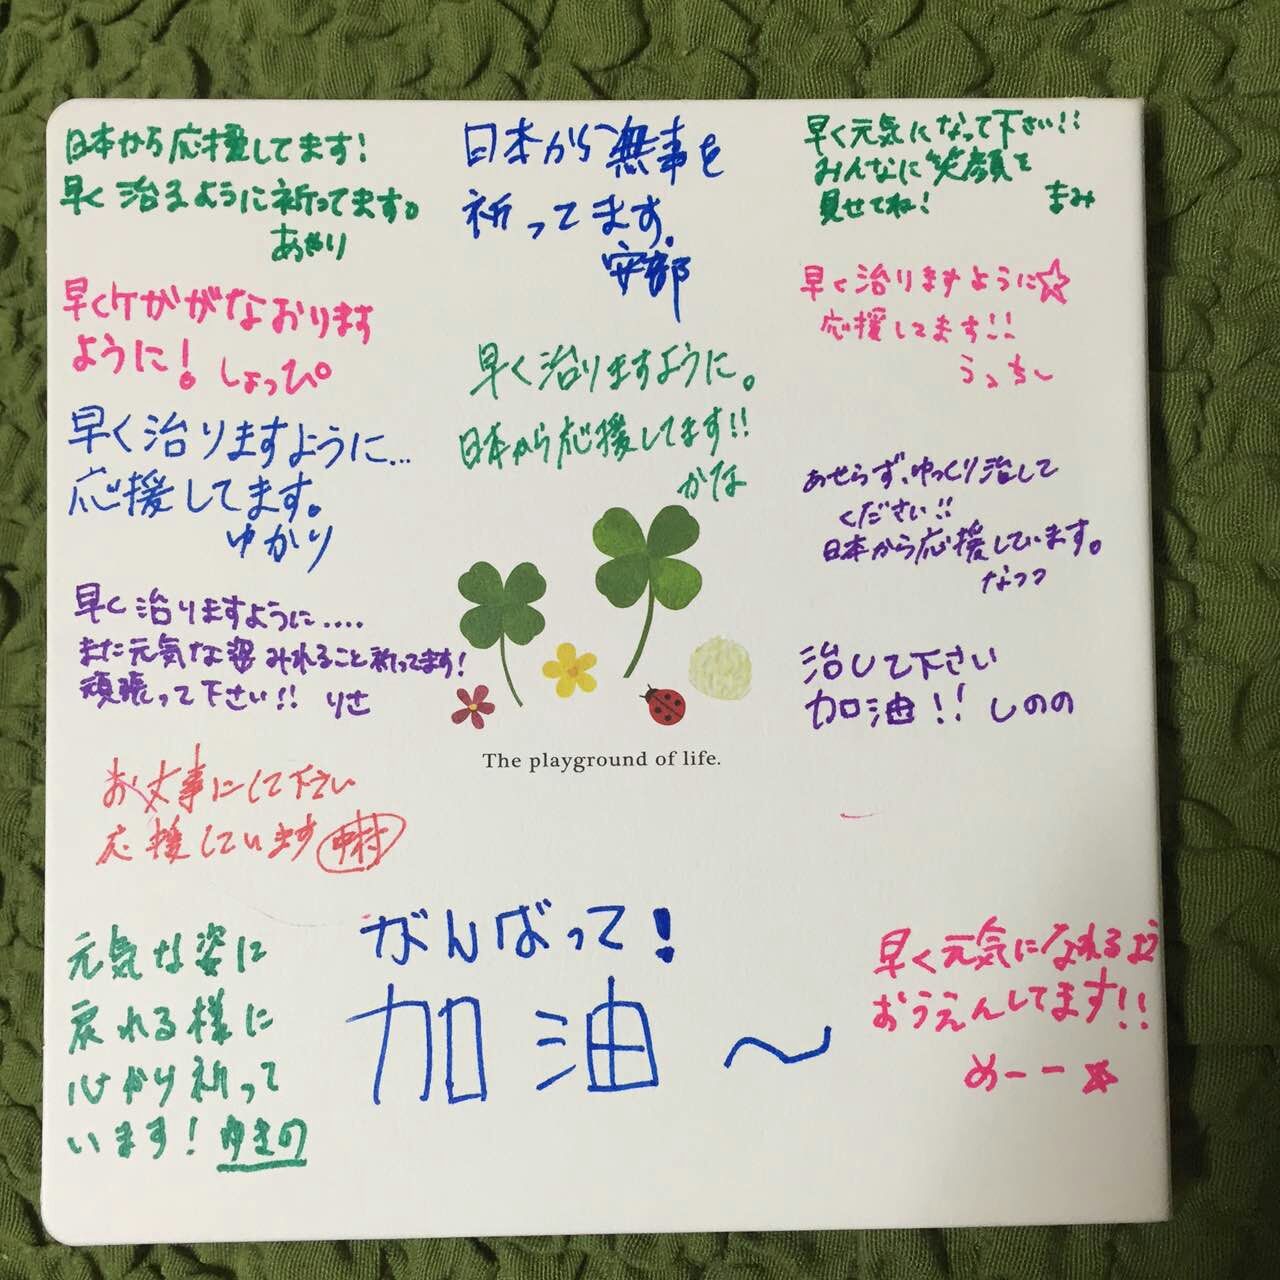 日本から応援してます!
早く治るように祈ってます。
あやり
早くケガがなおります
ように!しょっぴ
早く治りますように…
応援してます。
ゆかり
早く治りますように....
また元気な姿みれること祈ってます!
頑張って下さい!!りさ
お丈事にして下さい
応援しています 中村
元気な姿に
戻れる様に
心から祈って
います!ゆきの
日本から無事を
祈ってます。
安部
早く治りますように。
日本から応援してます!!
かな
The playground of life.
がんばって!
加油~
早く元気になって下さい!!
みんなに笑顔を
見せてね!
まみ
早く治りますように☆
応援してます!!
うっちー
あせらず、ゆっくり治して
ください!!
日本から応援しています。
なつつ
治して下さい
加油!!しのの
早く元気になれるよう
おうえんしてます!!
めーー☆